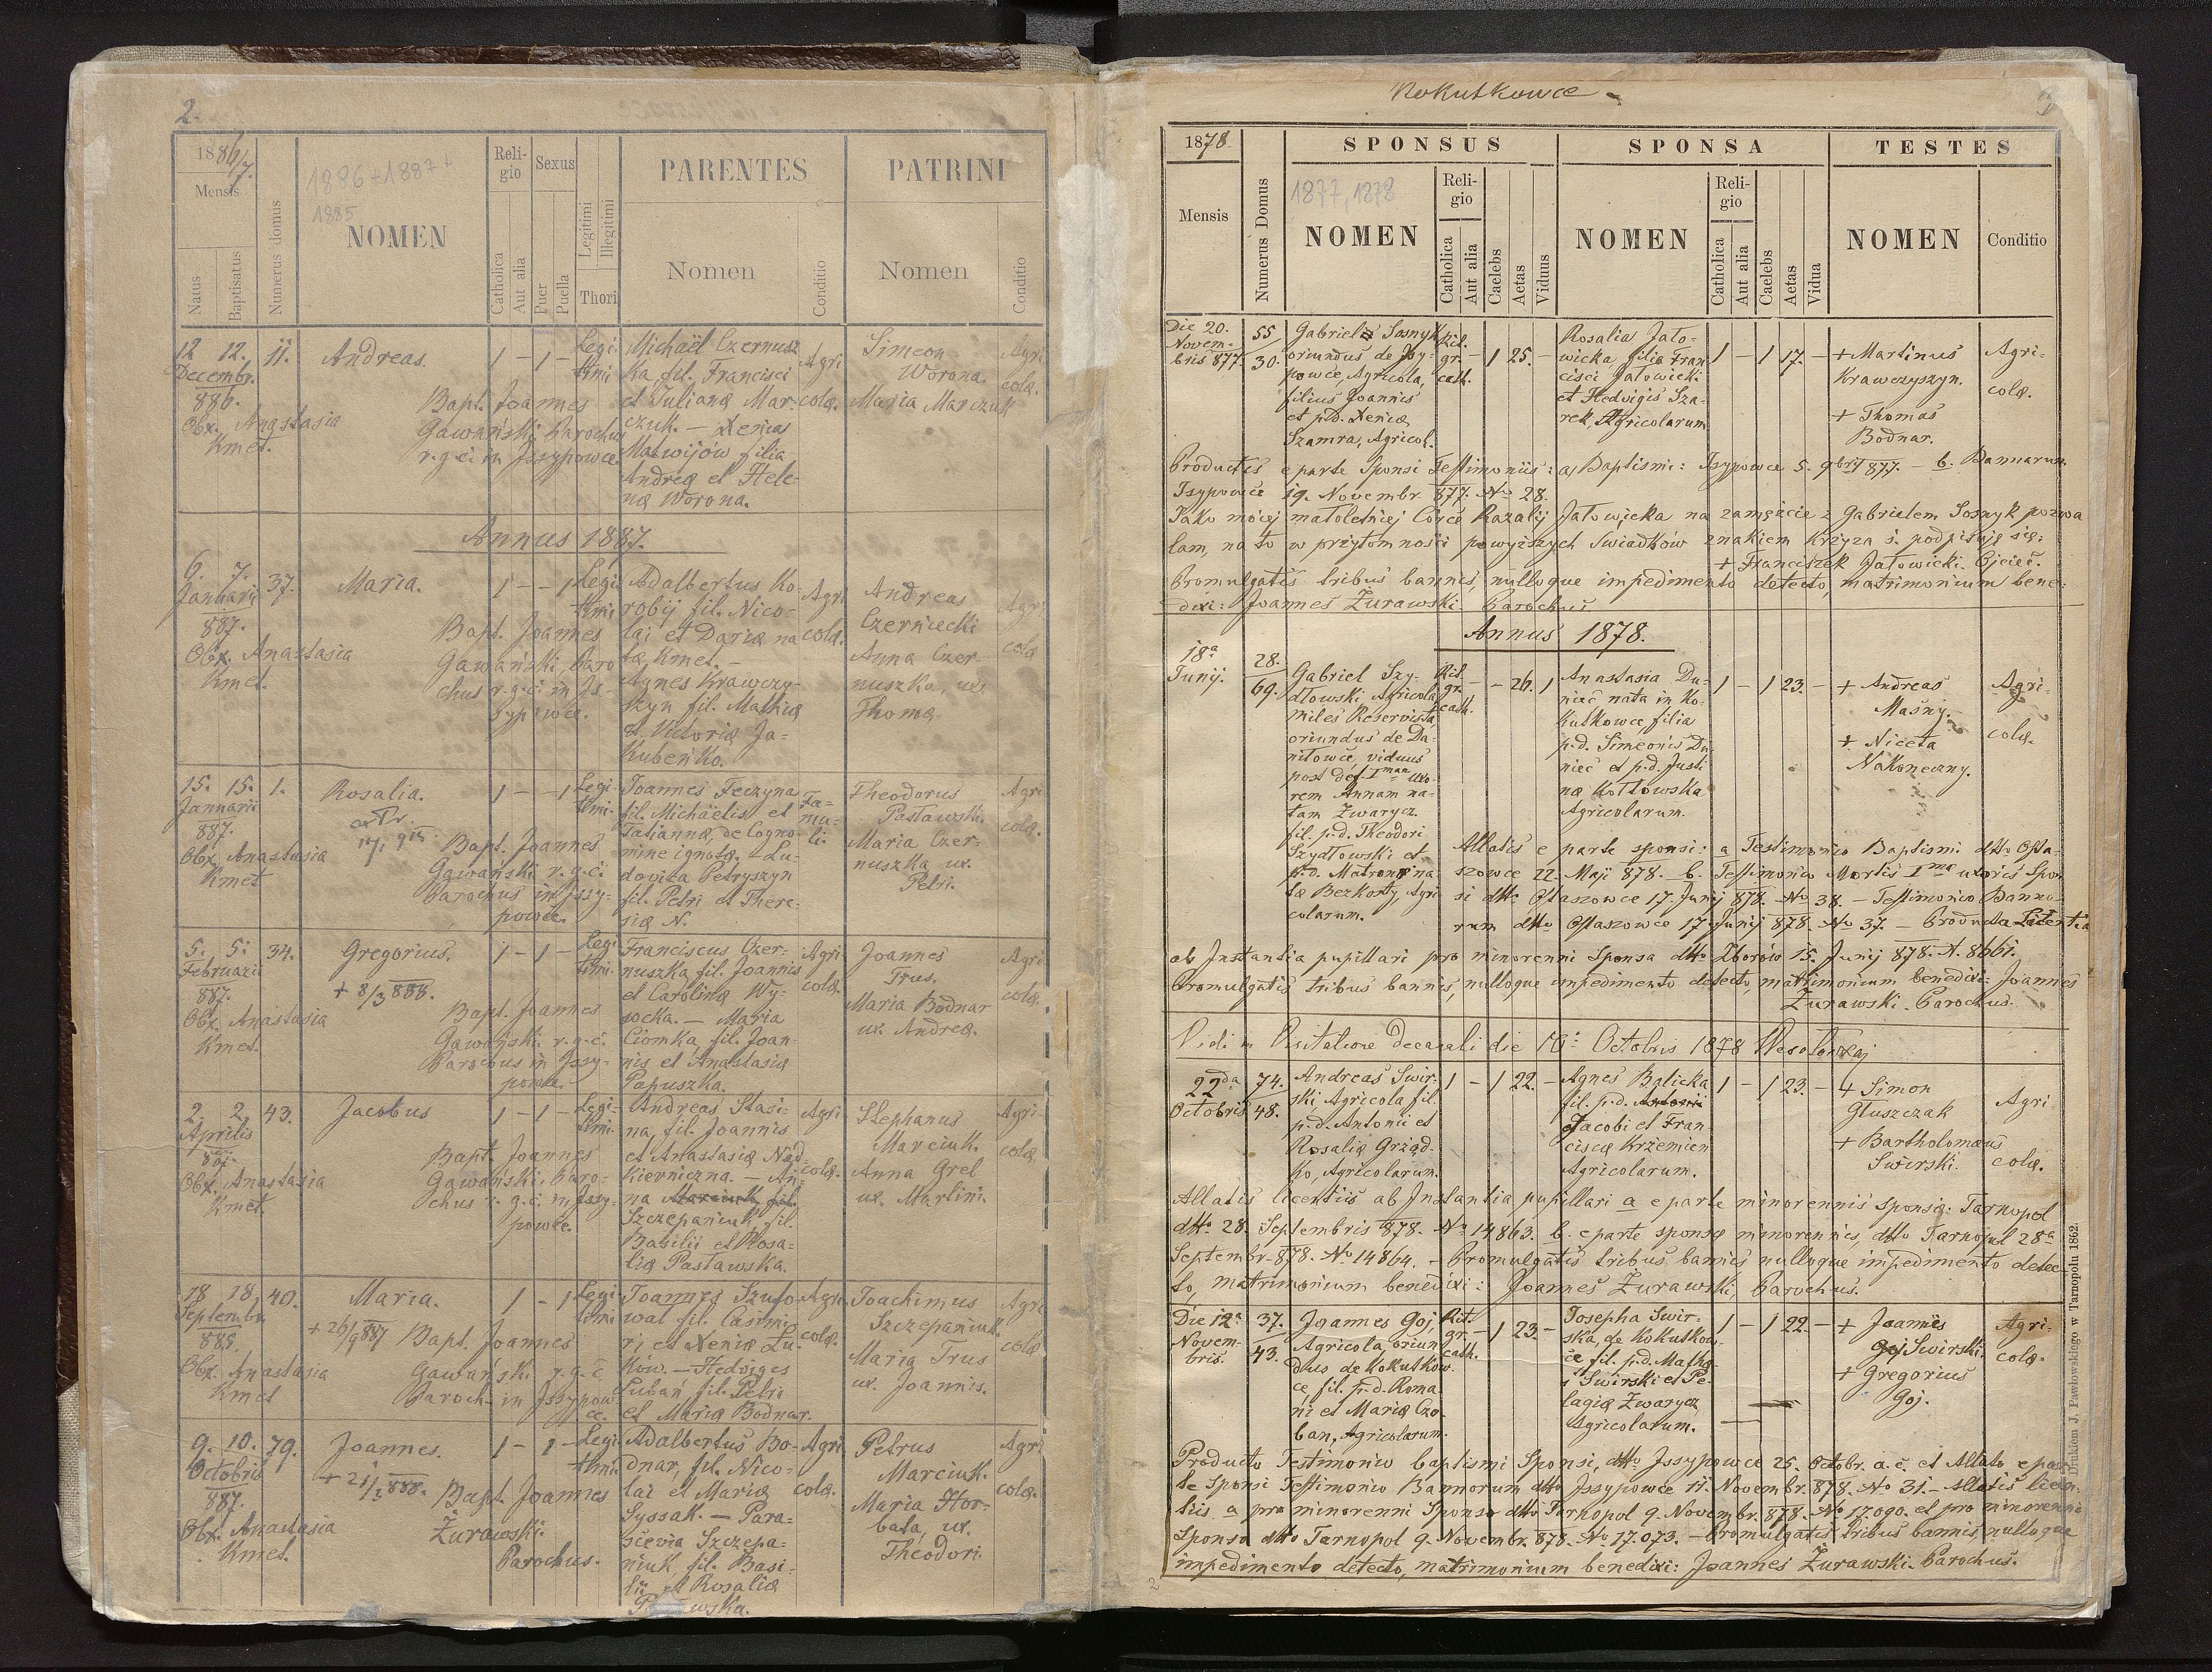 2.
1886/7.
Mensis
Natus
Baptisatus
Numerus domus
1886 + 1887 +
1885
NOMEN
Religio
Catholica
Aut alia
Sexus
Puer
Puella
Legitimi
Illegitimi
Thori
PARENTES
Nomen
Conditio
PATRINI
Nomen
Conditio
12 12. 11. Andreas. 1 - 1 - Legi
timi
Decembr.
886.
Obx. Anastasia
Kmet.
Bapt. Joannes
Gawański, Parochus
r.g.c. in Jssypowce.
Michaël Czernusz
ka, fil. Francisci
et Julianæ Mar-
czuk. — Xenia
Matwijów filia
Andreæ et Hele-
næ Worona.
Agri
colæ.
Simeon
Worona.
Maria Marczuk
Agri
colæ.
Annus 1887.
6. 7. 37. Maria. 1 - - 1 Legi
timi
Januarii
887.
Obx. Anastasia
Kmet.
Bapt. Joannes
Gawański, Paro
chus r.g.c. in Js-
sypowce.
Adalbertus Ko-
robij fil. Nico-
lai et Dariæ na
tæ Kmet. —
Agnes Krawczy-
szyn fil. Mathiæ
et Victoriæ Ja-
kubeńko.
Agri
colæ.
Andreas
Czerniecki
Anna Czer-
nuszka, ux.
Thomæ.
Agri
colæ
15. 15. 1. Rosalia. 1 - - 1 Legi
timi.
Januarii
887.
Obx. Anastasia
Kmet
Bapt. Joannes
Gawański r.g.c.
Parochus in Jssy-
powce.
Joannes Feczyna
fil. Michäelis et
Tatiannæ, de Cogno-
mine ignotæ. — Lu-
dovica Petryszyn
fil. Petri et There-
siæ N.
Fa-
mu-
li.
Theodorus
Pastawski.
Maria Czer-
nuszka ux.
Petri.
Agri
colæ.
5. 5. 34. Gregorius. 1 - 1 - Legi
timi.
Februarii
887.
+ 8/3 888.
Obx. Anastasia
Kmet.
Bapt. Joannes
Gawański. r.g.c.
Parochus in Jssy-
powce.
Franciscus Czer-
nuszka, fil. Joannis
et Carolinæ Wy-
socka. — Maria
Ciomka, fil. Joan-
nis et Anastasiæ
Papuszka.
Agri
colæ.
Joannes
Trus.
Maria Bodnar
ux. Andreæ.
Agri
colæ.
2. 2. 43. Jacobus 1 - 1 - Legi-
timi.
Aprilis
887.
Obx. Anastasia
Kmet.
Bapt. Joannes
Gawański, Paro-
chus r.g.c. in Jssy-
powce.
Andreas Stasi-
na, fil. Joannis
et Anastasiæ Nad-
kierniczna. — An-
na Marciuk fil.
Szczepaniuk, fil.
Basilii et Rosa-
liæ Pastawska.
Agri
colæ.
Stephanus
Marciuk.
Anna Grel
ux. Martini.
Agri-
colæ.
18 18. 40. Maria. 1 - 1 Legi
timi
Septembr.
+ 26/9 887
Obx. Anastasia
Kmet
Bapt. Joannes
Gawański r.g.c.
Paroch. in Jssypow-
ce.
Joannes Szuto-
wat fil. Casimi-
ri et Xeniæ Lu-
ków. — Hedviges
Lubań, fil. Petri
et Mariæ Bodnar.
Agri
colæ.
Joachimus
Szczepaniuk.
Maria Trus
ux. Joannis.
Agri
colæ
9. 10. 79. Joannes. 1 - 1 - Legi
timi.
Octobris
887.
Obx. Anastasia
Kmet.
Bapt. Joannes
Żurawski
Parochus.
Adalbertus Bo-
dnar, fil. Nico-
lai et Mariæ
Syssak. — Para-
scevia Szczepa-
niuk, fil. Basi-
lii et Rosaliæ
Agri
colæ.
Petrus
Marciuk.
Maria Hor-
bata, ux.
Theodori.
Agri
colæ.
Kokutkowce
1878.
Mensis
Numerus Domus
SPONSUS
1877, 1878
NOMEN
Religio
Catholica
Aut alia
Caelebs
Aetas
Viduus
SPONSA
NOMEN
Religio
Catholica
Aut alia
Caelebs
Aetas
Vidua
TESTES
NOMEN
Conditio
Die 20.
Novem-
bris 877.
55
30.
Gabriel Sosnyk
oriundus de Jsy-
powce, Agricola,
filius Joannis
et p.d. Xeniæ
Szamra, Agricol.
Rit.
gr.
cath.
- 1 25. -
Rosalia Jato-
wicka filia Fran
cisci Jatowicki
et Hedvigis Sza-
rek, Agricolarum
1 - 1 17. -
+ Martinus
Krawczyszyn.
+ Thomas
Bodnar.
Agri-
colæ.
Productis e parte Sponsi Testimoniis: a, Baptismi: Jsypowce 5. 9bris 877. — b. Bannarum
Jsypowce 19. Novembr. 877. No 28.
Jako mojej małoletniej Córce Razalij Jatowicka na zamęzcie z Gabrielem Sosnyk pozwa
lam, na to w przytomności powyższych Świadków znakiem krzyża ś. podpisuję się:
+ Franciszek Jatowicki. Ojciec.
Promulgatis tribus bannis, nulloque impedimento detecto, matrimonium bene-
dixi: Joannes Żurawski Parochus.
Annus 1878.
18a
Junij.
28.
69.
Gabriel Szy-
dłowski Agricola
miles Reservista
oriundus de Da-
nitowce, viduus
post def. Iman uxo-
rem Annam na-
tam Zwarycz
fil. p.d. Theodori
Szydłowski et
p.d. Matronæ na
tæ Bezkorty, Agri
colarum.
Rit.
gr.
cath.
- - 26. 1
Anastasia Du-
nieć nata in Ko-
kutkowce, filia
p.d. Simeonis Du
nieć et p.d. Justi
næ Kotłowska
Agricolarum.
1 - 1 23. -
+ Andreas
Maśny.
+ Niceta
Nakoneczny.
Agri-
colæ.
Allatis e parte sponsi: a Testimonio Baptismi dtto Osta-
szowce 22. Maji 878. b. Testimonio Mortis Imæ uxoris Spon
si dtto Ostaszowce 17. Junij 878. No 38. — Testimonio Banno-
rum dtto Ostaszowce 17 Junij 878. No 37. — Producta Licentia
ab Jnstantia pupillari pro minorenni Sponsa dtto Zborów 15. Junij 878. N. 8661.
Promulgatis tribus bannis, nulloque impedimento detecto, matrimonium benedixi: Joannes
Żurawski. Parochus.
Vidi in Visitatione decanali die Octobris 1878
22da
Octobris
74.
48.
Andreas Swir-
ski Agricola fil.
p.d. Antonii et
Rosaliæ Grząd-
ko, Agricolarum.
1 - 1 22. -
Agnes Balicka
fil. p.d. Antonii
Jacobi et Fran-
ciscæ Krzemień
Agricolarum.
1 - 1 23. -
+ Simon
Głuszczak
+ Bartholomæus
Swirski.
Agri
colæ.
Allatis licentiis ab Jnstantia pupillari a e parte minorennis sponsi: Tarnopol
dtto 28. Septembris 878. No 14863. b. e parte sponsæ minorennis, dtto Tarnopol 28a
Septembr. 878. No 14864. — Promulgatis tribus bannis nulloque impedimento detec
to, matrimonium benedixi: Joannes Żurawski, Parochus.
Die 12a
Novem-
bris.
37.
43.
Joannes Goj
Agricola, oriun
dus de Kokutkow-
ce, fil. p.d. Roma
ni et Mariæ Czo-
ban, Agricolarum.
Rit.
gr.
cath.
- 1 23. -
Josepha Swir-
ska, de Kokutkow-
ce, fil. p.d. Mathæ
i Swirski et Pe-
lagiæ Zwarycz
Agricolarum.
1 - 1 22. -
+ Joannes
Goj Swirski.
+ Gregorius
Goj.
Agri-
colæ.
Producto Testimonio baptismi Sponsi, dtto Jssypowce 25. Octobr. a.c. et Allato e par-
te Sponsi Testimonio Bannorum dtto Jssypowce 11. Novembr. 878. No 31. — Allatis licen-
tiis a pro minorenni Sponso dtto Tarnopol 9. Novembr. 878. No 17.090. et pro minorenni
Sponsa dtto Tarnopol 9. Novembr. 878. No 17.073. — Promulgatis tribus bannis, nulloque
impedimento detecto, matrimonium benedixi: Joannes Żurawski. Parochus.
Drukiem J. Pawłowskiego w Tarnopolu 1862.